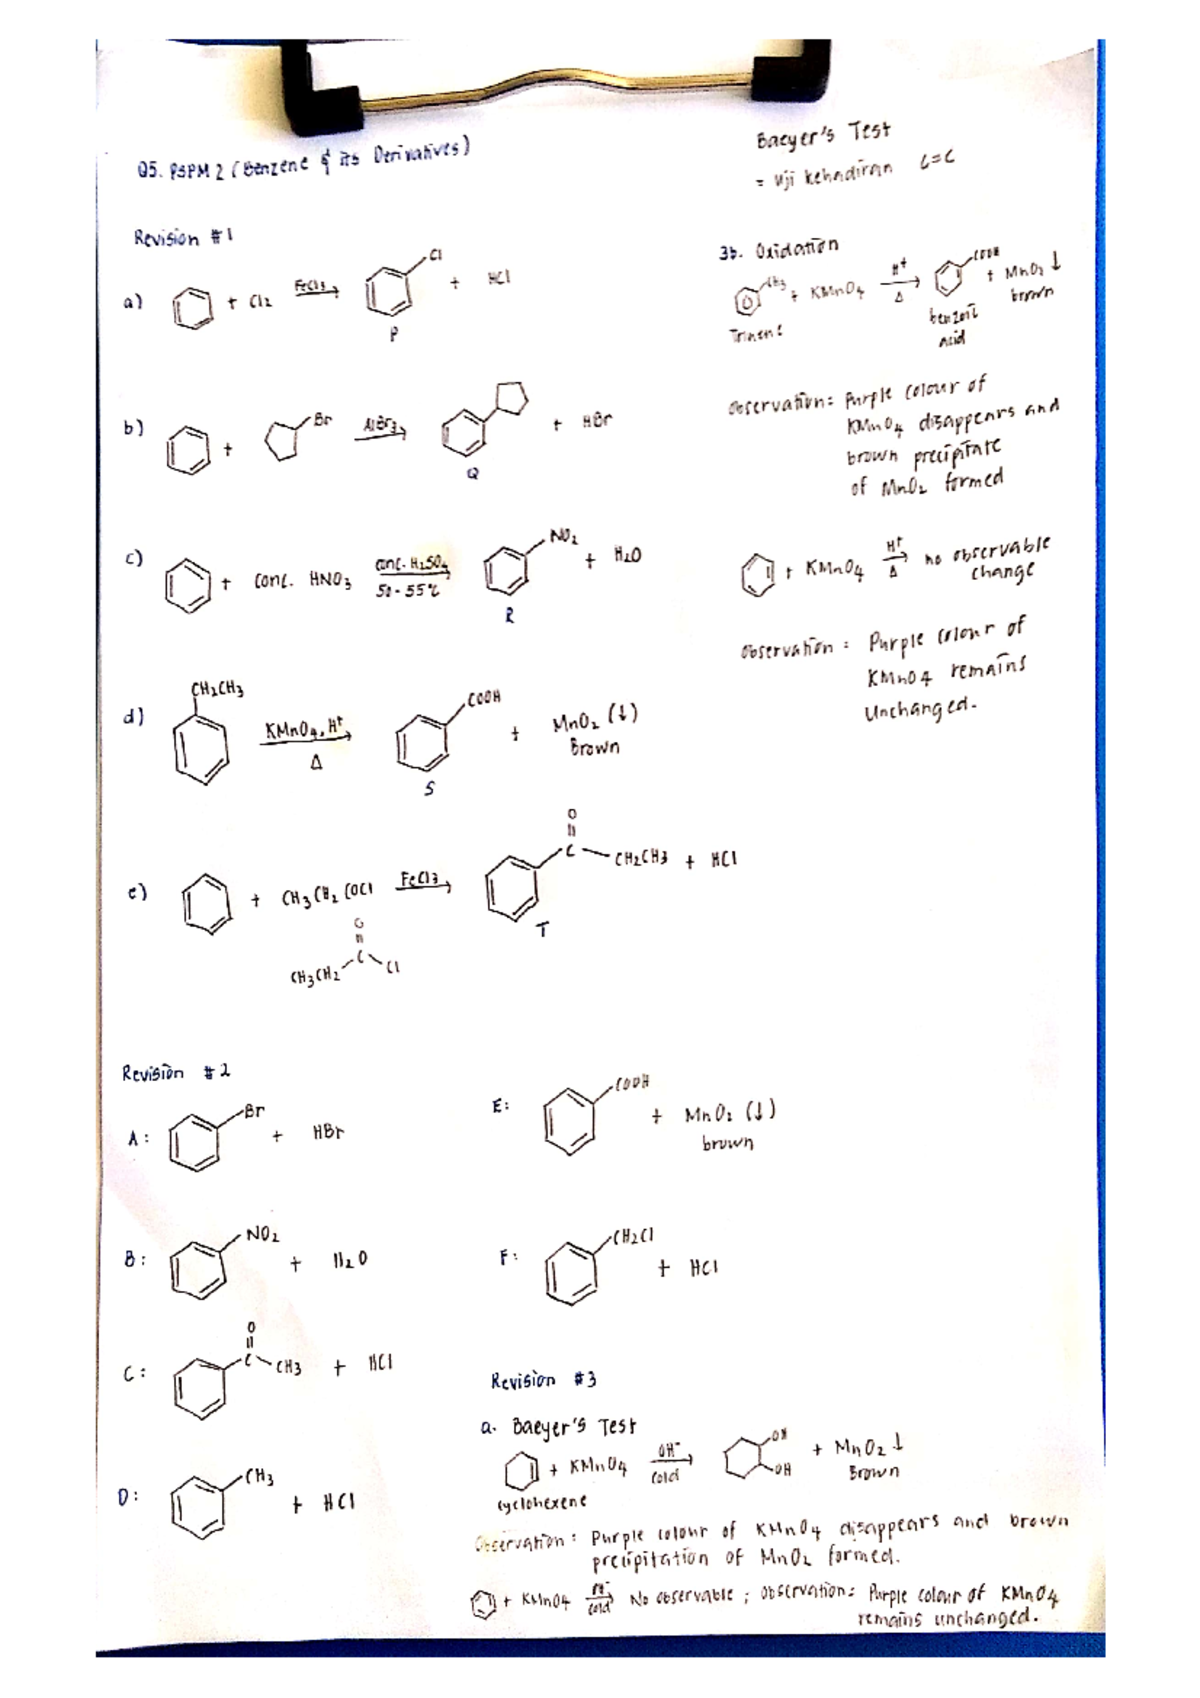 Q5. PSPM 2 (Benzene & its Derivatives)
Revision #1
a) + Cl2 FeCl3 Cl + HCl
P
b) + Br AlBr3 + HBr
Q
c) + conc. HNO3 conc. H2SO4 50-55°C NO2 + H2O
R
d) CH2CH3 KMnO4, H+ Δ COOH + MnO2 (↓)
Brown
S
e) + CH3CH2COCl FeCl3 O
C CH2CH3 + HCl
T
O
CH3CH2 C Cl
Baeyer's Test
= Uji kehadiran C=C
3b. Oxidation
CH3 + KMnO4 H+ Δ COOH + MnO2 ↓
benzoic acid
brown
Observation: Purple colour of
KMnO4 disappears and
brown precipitate
of MnO2 formed
+ KMnO4 H+ Δ no observable
change
Observation: Purple colour of
KMnO4 remains
Unchanged.
Revision #2
A: Br + HBr
B: NO2 + H2O
C: O
C CH3 + HCl
D: CH3 + HCl
E: COOH + MnO2 (↓)
brown
F: CH2Cl + HCl
Revision #3
a. Baeyer's Test
+ KMnO4 OH- cold OH OH + MnO2 ↓
Brown
cyclohexene
Observation: Purple colour of KMnO4 disappears and brown
precipitation of MnO2 formed.
+ KMnO4 cold No observable ; observation: Purple colour of KMnO4
remains unchanged.